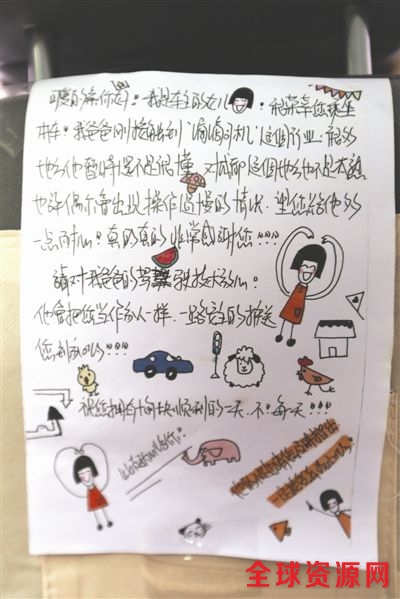 可爱的亲们好！我是车主的女儿，很荣幸您乘坐
本车。我爸爸刚接触到“滴滴司机”这个行业，很多
地方他暂时还不是很懂，对成都这个地方也不是太熟
也许偶尔会出现操作过慢的情况，望您给他多
一点耐心。真的真的非常感谢您！！！
请对我爸的驾驶技术放心。
他会把您当作家人一样，一路安全的护送
您到目的地！！！
祝您拥有愉快顺利的一天，不！每一天！！！
全球资源网